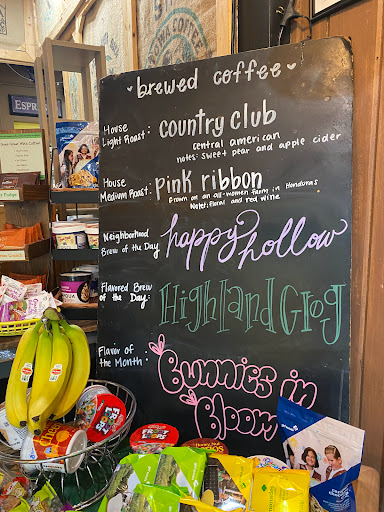 ESPR
brewed coffee
House
Light Roast: country club
central american
notes: sweet pear and apple cider
House
Medium Roast: pink ribbon
Grown on an all-women farm in Honduras
Notes: floral and red wine
Neighborhood
Brew of the Day: happy hollow
Flavored Brew
of the Day: Highland Grog
Flavor of
the Month: Bunnies in
Bloom
FROOT
LOOPS